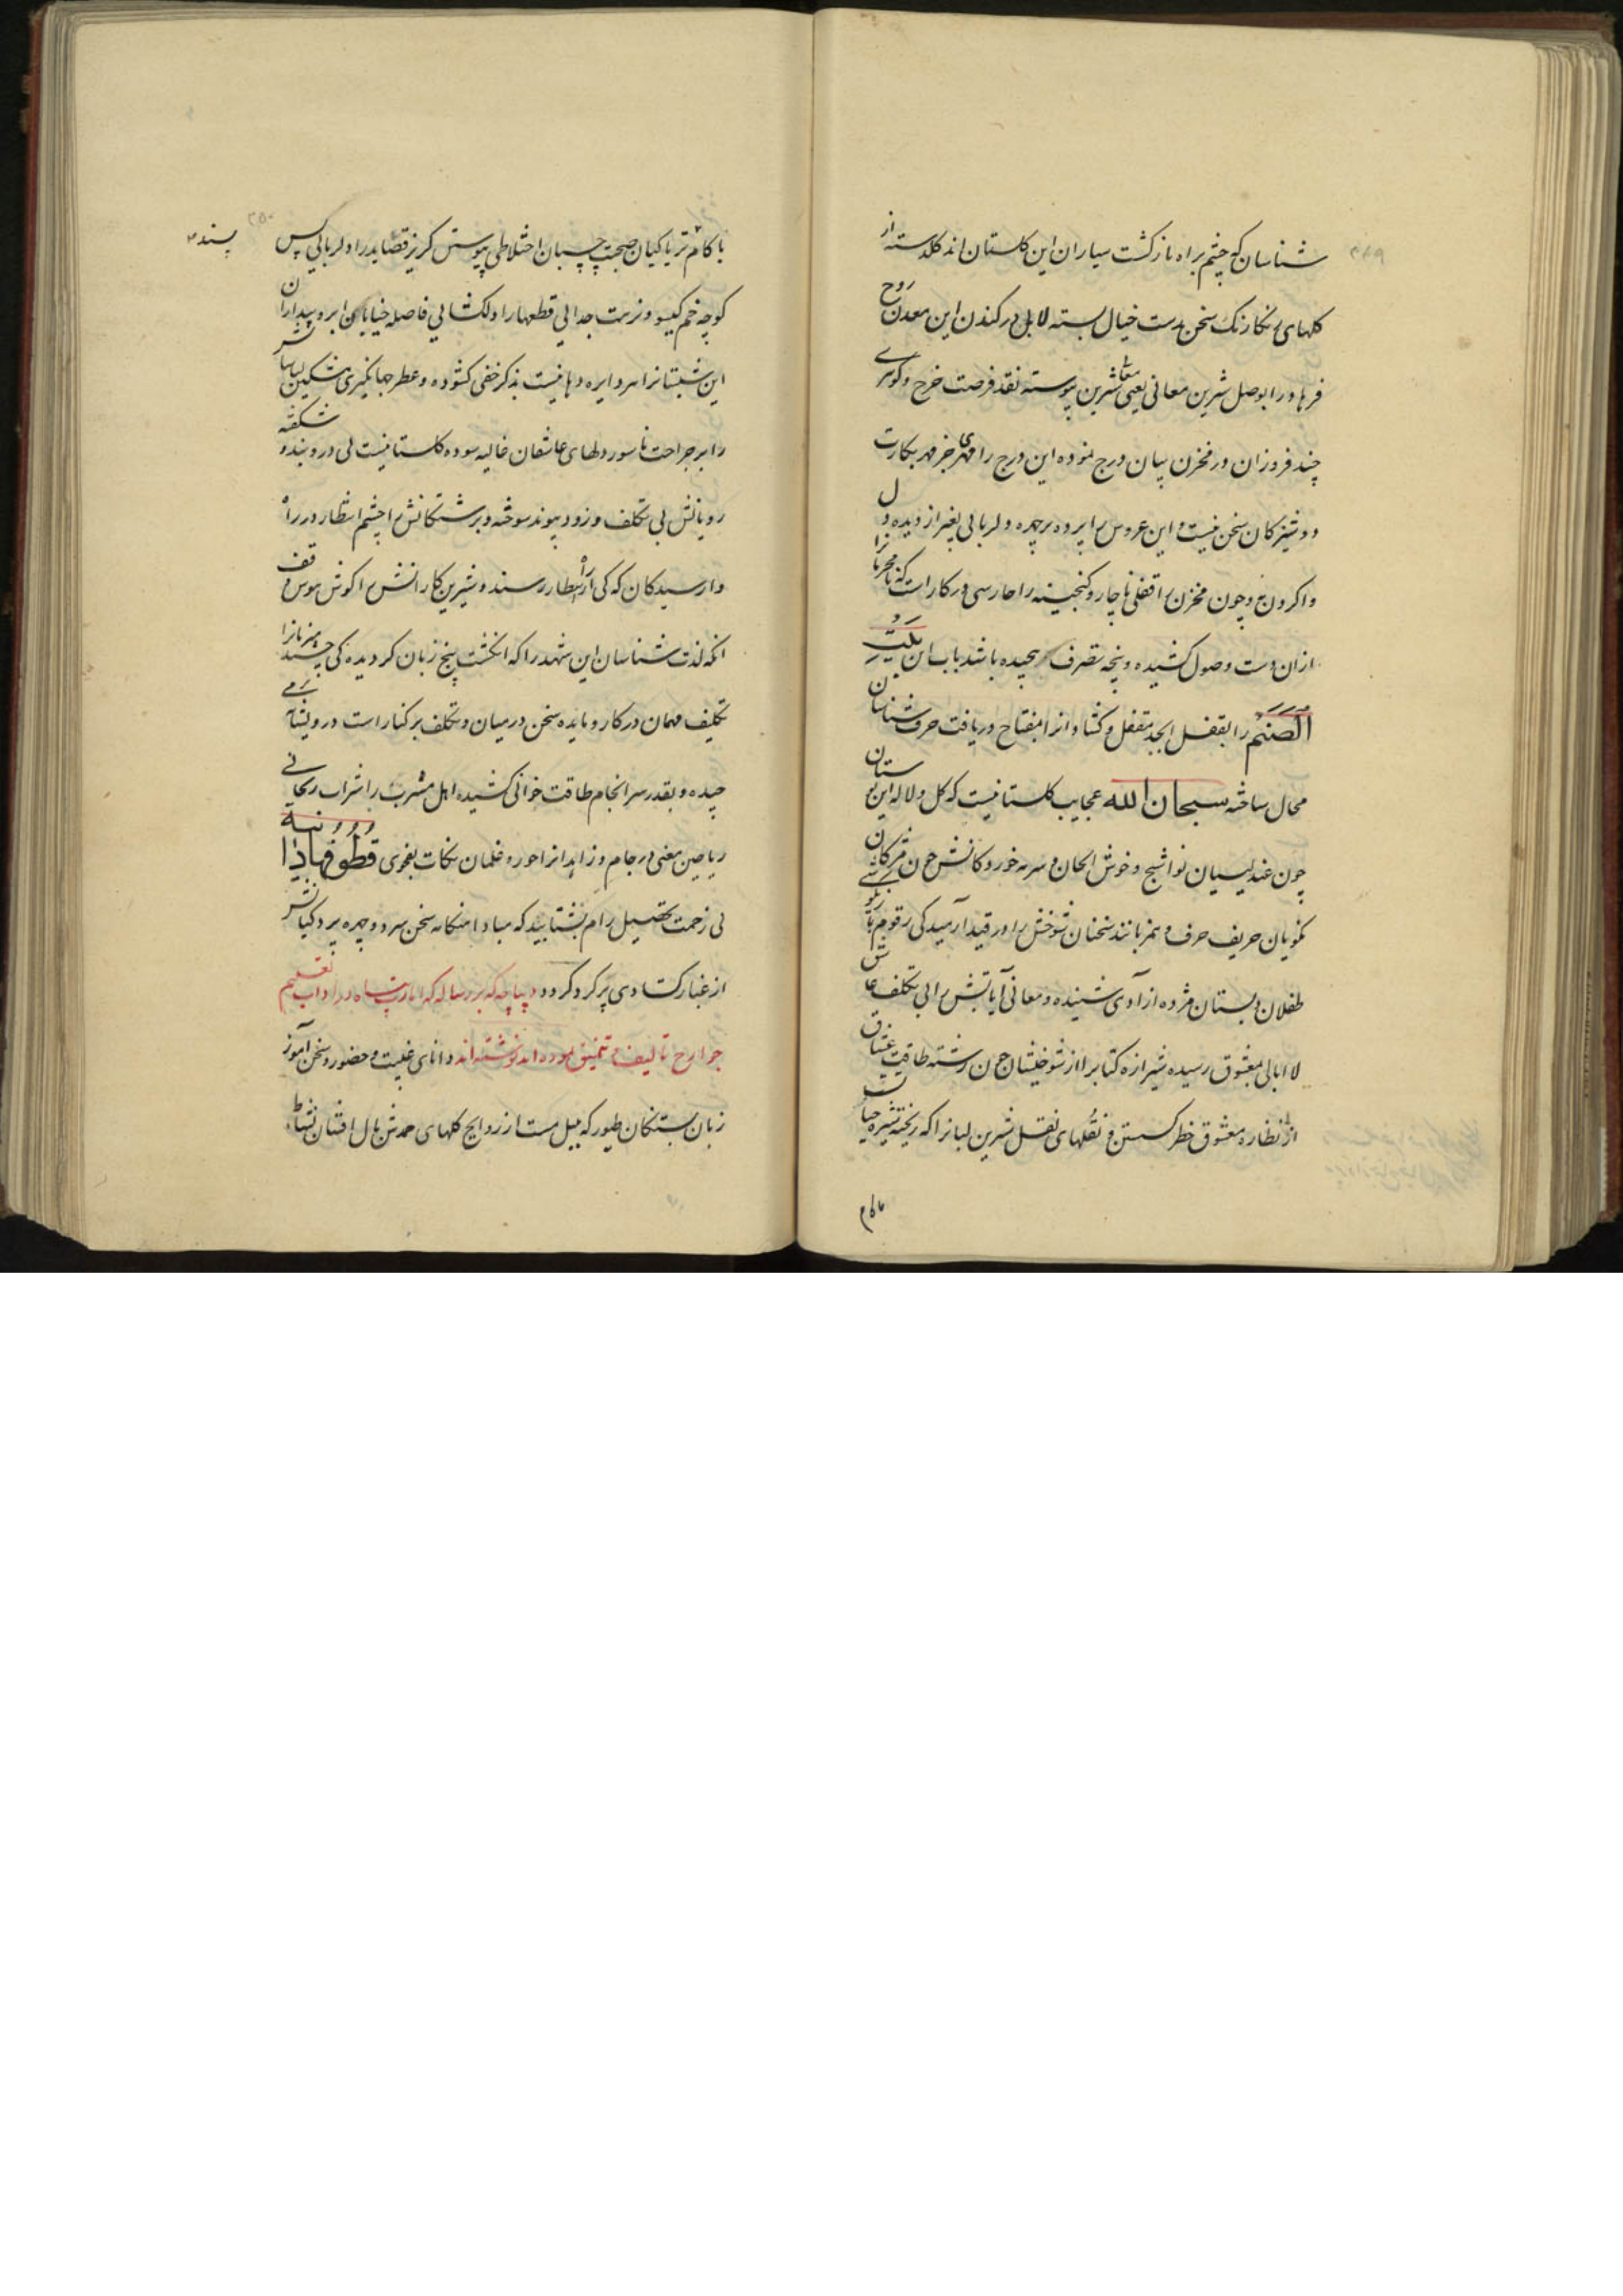 شناسان که چشم براه بازکشت سیاران این کلستان اند کلدسته از
کلهای نکارنک سخن بدست خیال بسته لابل در کندن این معدن روح
فرهاد را بوصل شیرین معانی یعنی شیرین پیوسته نقد فرصت خرج و کوهری
چند فروزان در مخزن بیان درج نموده این درج را مهری جز مهر بکارت
دوشیزکان سخن نیست و این عروس را پرده بر چهره دلربایی بغیر از دیده دل
وا کردن نه و چون مخزن را قفلی ناچار و کنجینه را حارسی در کار است که
ازان دست وصول کشیده و پنجه تصرف پیچیده باشد باب این بیت
الصنم را بقفل ابجد مقفل و کشاد انرا بمفتاح دریافت حرف شناسان
محال ساخته سبحان الله عجایب کلستانیست که کل و لاله این بوستان
چون عندلیبان نواسنج و خوش الحان و سرمه خوردکانش چون
نکویان حریف حرف و همزبانند سخنان شوخش را در قید آرمیدکی رقوم
طفلان دبستان مژده ازادی شنیده و معانی آیاتش را بی تکلف
لاابالی بمعشوق رسیده شیرازه کتابرا از شوخیشان چون رشته طاقت عشاق
از نظاره معشوق خطر کسستن و نقلهای نقل شیرین لبانرا که ریخته شیره حیات
با کام تریاکیان صحبت چسبان اختلاطی پیوستن کریز قصاید را دلربایی پس
کوچه خم کیسو و نزهت جدایی قطعها را دلکشایی فاصله خیابان ابرو بیداران
این شبستانرا هر دایره دهانیست بذکر خفی کشوده و عطر جهانکیری مشکین لباسانش
را بر جراحت ناسور دلهای عاشقان غالیه سوده کلستانیست بی در و بند و شکفته
رویانش بی تکلف و زود پیوند سوخته و برشتکانش را چشم انتظار در راه
وارسیدکان که کی از راه انتظار رسند و شیرین کارانش را کوش هوس وقف
انکه لذت شناسان این شهد را که انکشت پیچ زبان کردیده کی چسند میزبانرا
تکلیف مهمان در کار و مایده سخن درمیان و تکلف بر کنار است درویشانه بزمی
چیده و بقدر سرانجام طاقت خوانی کشیده اهل مشرب را شراب ریحانی
ریاحین معنی در جام و زاهدانرا حور و غلمان نکات بفحوی قطوفها دانیة
بی زحمت تحصیل رام بشتابید که مبادا هنکامه سخن سرد و چهره پردکیانش
از غبار کسادی پر کرد کردد دیباچه که بر رساله که
جوارح تالیف و تنمیق نموده اند نوشته اند دانای غیبت و حضور و سخن آموز
زبان بستکان طیور که بلبل مست از روایح کلهای حمدش بال افشان نشاط